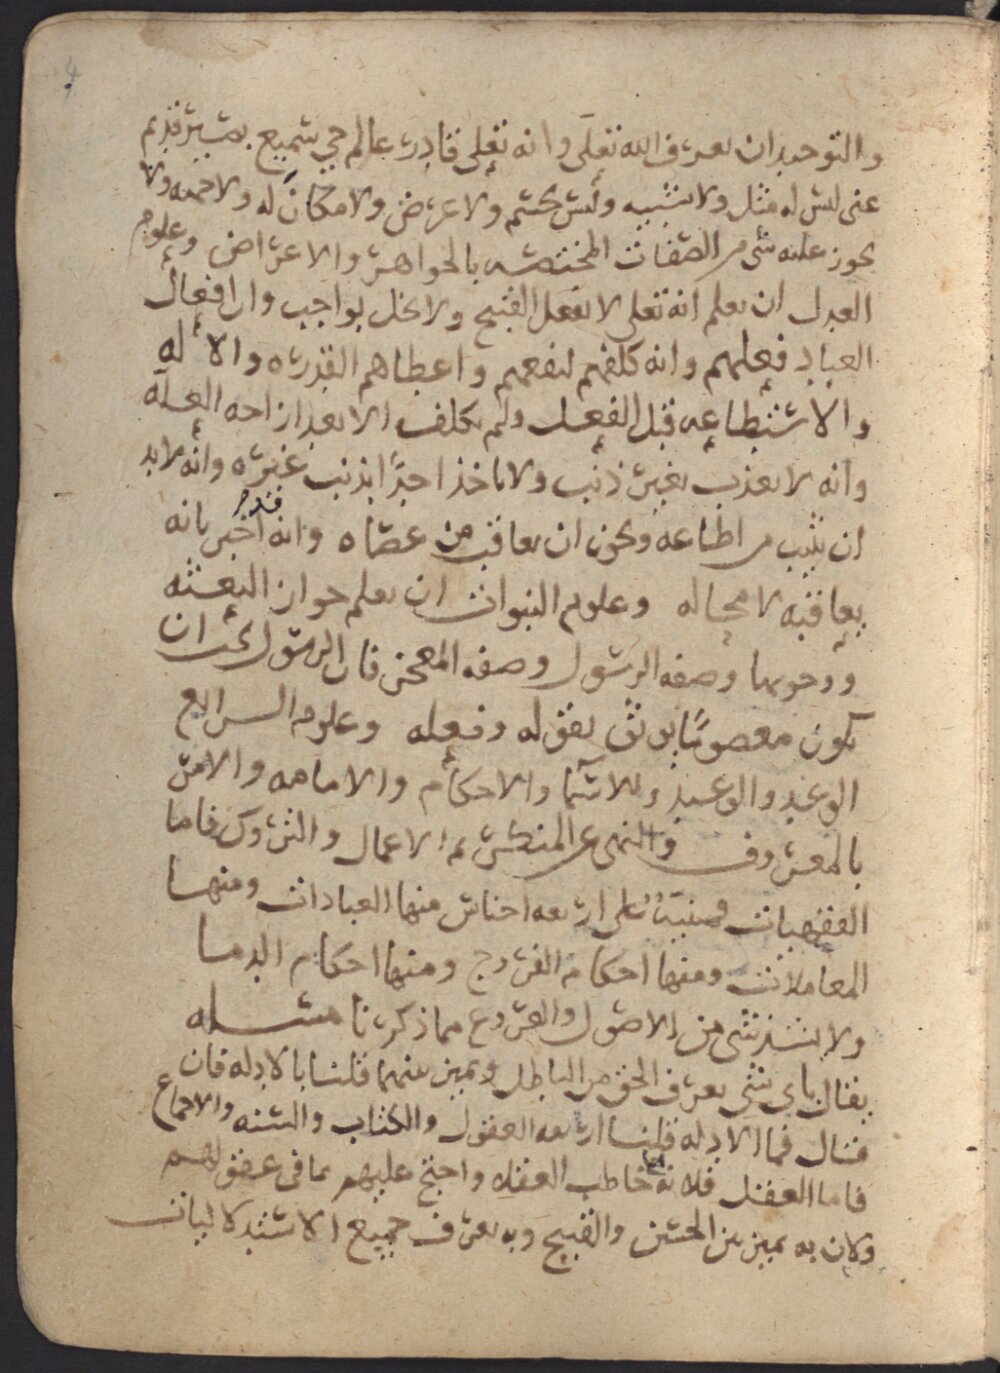 والتوحيد ان يعرف الله تعلى وانه تعلى قادر عالم حي سميع بصير قديم
غني ليس له مثل ولا شبيه وليس بجسم ولا عرض ولا مكان له ولا جهه ولا
يجوز عليه شي من الصفات المختصه بالجواهر والاعراض وعلوم
العدل ان يعلم انه تعلى لا يفعل القبيح ولا يخل بواجب وان افعال
العباد فعلهم وانه كلفهم لنفعهم واعطاهم القدره والاله
والاستطاعه قبل الفعل ولم يكلف الا بعد ازاحه العله
وانه لا يعذب بغير ذنب ولا ياخذ احدًا بذنب غيره وانه لا بد
ان يثيب من اطاعه ويجوز ان يعاقب من عصاه وانه قد اخبر بانه
يعاقبه لا محاله وعلوم النبوات ان يعلم جواز البعثه
ووجوبها وصفه الرسول وصفه المعجز فان الرسول يجب ان
يكون معصومًا يوثق بقوله وفعله وعلوم الشرايع
الوعد والوعيد والاسما والاحكام والامامه والامر
بالمعروف والنهي عن المنكر ثم الاعمال والتروك فاما
الفقهيات فمبنيه على اربعه اجناس منها العبادات ومنها
المعاملات ومنها احكام الفروج ومنها احكام الدما
ولا يشذ شي من الاصول والفروع مما ذكرنا مسله
يقال باي شي يعرف الحق من الباطل ويميز بينهما قلنا بالادله فان
قال فما الادله قلنا اربعه العقول والكتاب والسنه والاجماع
فاما العقل فلانه انما خاطب العقلا واحتج عليهم بما في عقولهم
ولان به يميز بين الحسن والقبيح وبه يعرف جميع الاستدلاليات